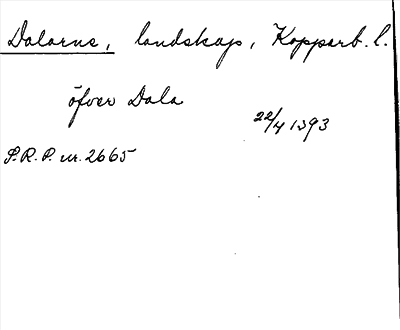 Dalarne, landskap, Kopparb. l.
öfver Dala
22/4 1393
S.R.P. nr. 2665